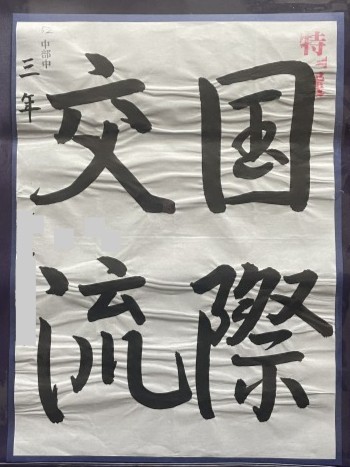 国際
交流
中部中
三年
特選